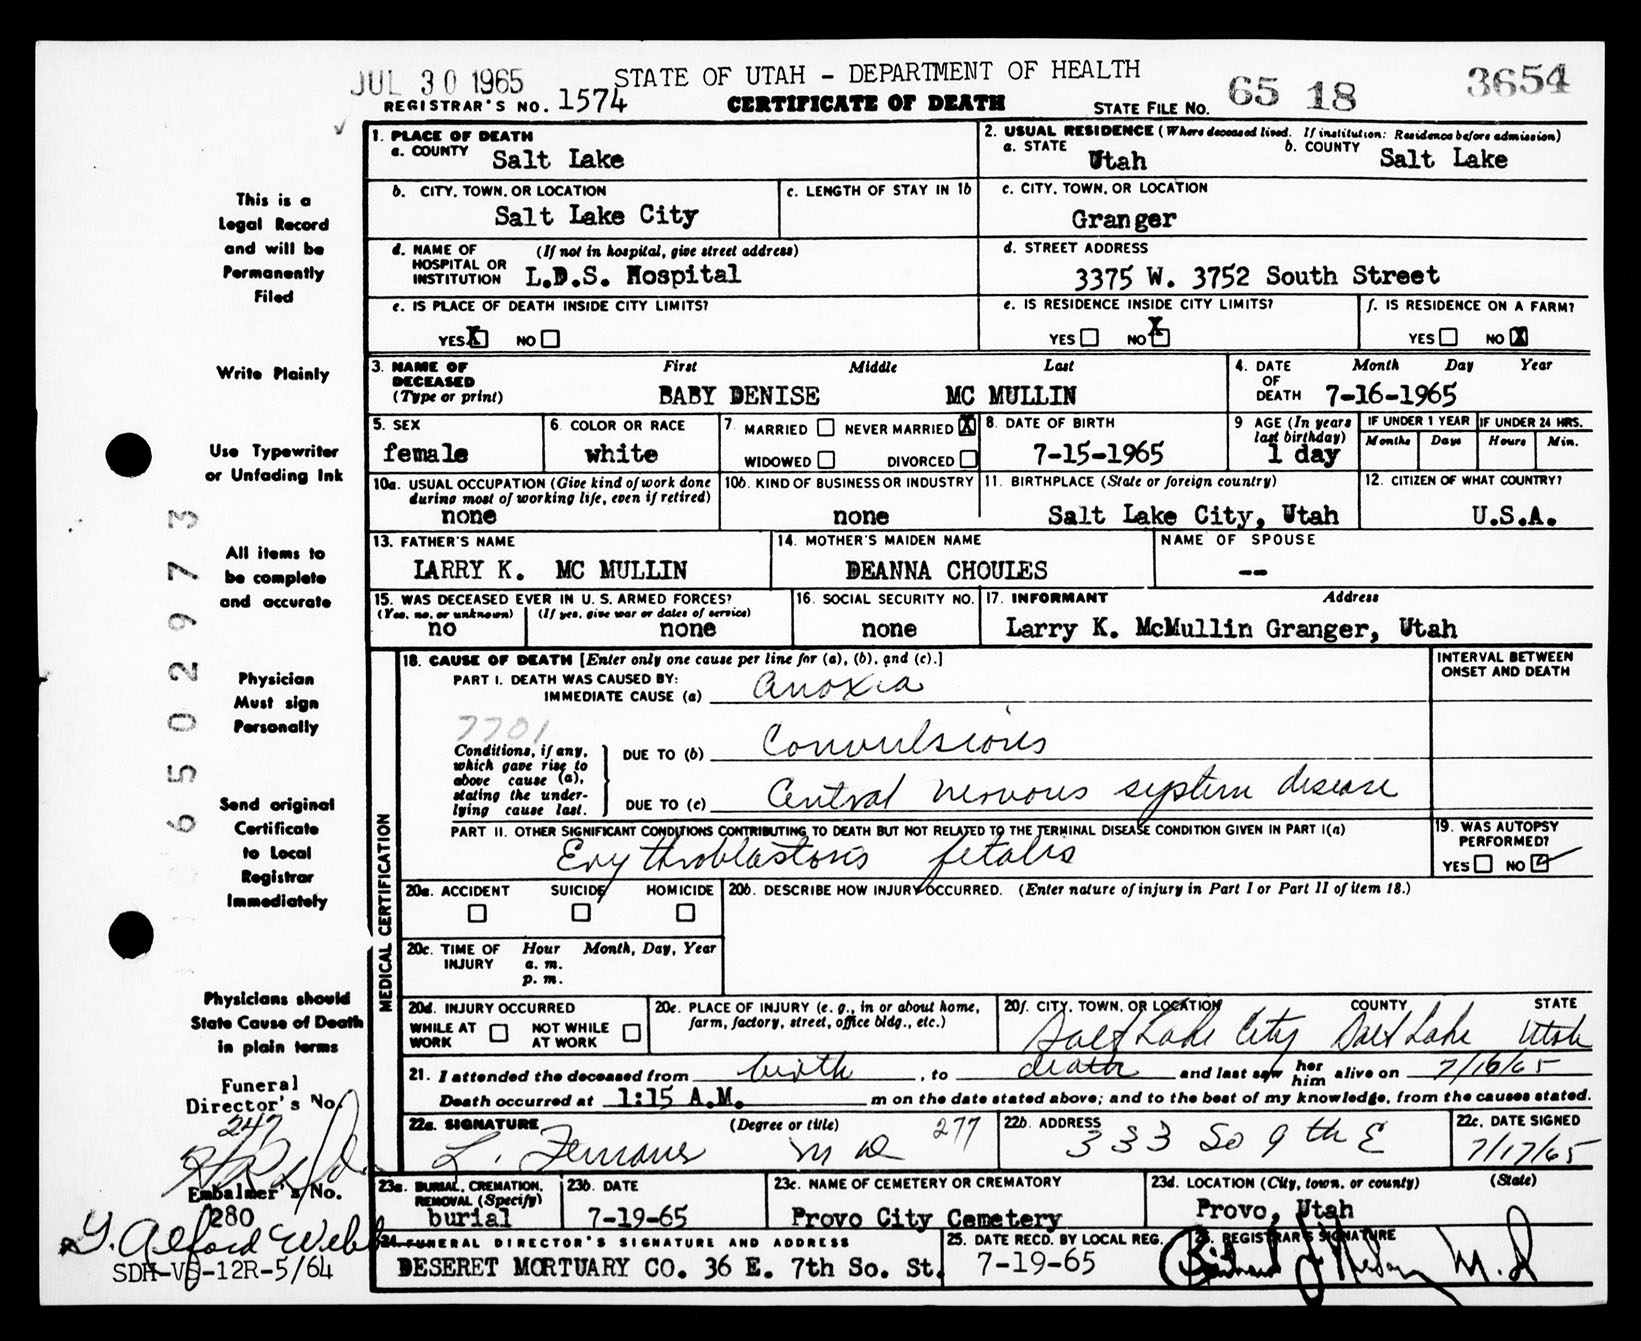 JUL 30 1965
STATE OF UTAH - DEPARTMENT OF HEALTH
65 18 3654
REGISTRAR'S NO. 1574 CERTIFICATE OF DEATH STATE FILE NO.
1. PLACE OF DEATH
a. COUNTY Salt Lake
2. USUAL RESIDENCE (Where deceased lived. If institution: Residence before admission)
a. STATE Utah b. COUNTY Salt Lake
b. CITY, TOWN, OR LOCATION
Salt Lake City
c. LENGTH OF STAY IN 1b
c. CITY, TOWN, OR LOCATION
Granger
d. NAME OF HOSPITAL OR INSTITUTION (If not in hospital, give street address)
L.D.S. Hospital
d. STREET ADDRESS
3375 W. 3752 South Street
e. IS PLACE OF DEATH INSIDE CITY LIMITS?
YES X NO
e. IS RESIDENCE INSIDE CITY LIMITS?
YES NO X
f. IS RESIDENCE ON A FARM?
YES NO X
3. NAME OF DECEASED (Type or print)
First Middle Last
BABY DENISE MC MULLIN
4. DATE OF DEATH Month Day Year
7-16-1965
5. SEX
female
6. COLOR OR RACE
white
7. MARRIED NEVER MARRIED X
WIDOWED DIVORCED
8. DATE OF BIRTH
7-15-1965
9 AGE (In years last birthday)
1 day
IF UNDER 1 YEAR IF UNDER 24 HRS.
Months Days Hours Min.
10a. USUAL OCCUPATION (Give kind of work done during most of working life, even if retired)
none
10b. KIND OF BUSINESS OR INDUSTRY
none
11. BIRTHPLACE (State or foreign country)
Salt Lake City, Utah
12. CITIZEN OF WHAT COUNTRY?
U.S.A.
13. FATHER'S NAME
LARRY K. MC MULLIN
14. MOTHER'S MAIDEN NAME
DEANNA CHOULES
NAME OF SPOUSE
--
15. WAS DECEASED EVER IN U.S. ARMED FORCES?
(Yes, no, or unknown) (If yes, give war or dates of service)
no none
16. SOCIAL SECURITY NO.
none
17. INFORMANT Address
Larry K. McMullin Granger, Utah
MEDICAL CERTIFICATION
18. CAUSE OF DEATH [Enter only one cause per line for (a), (b), and (c).]
INTERVAL BETWEEN ONSET AND DEATH
PART I. DEATH WAS CAUSED BY:
IMMEDIATE CAUSE (a) Anoxia
7701
Conditions, if any, which gave rise to above cause (a), stating the underlying cause last.
DUE TO (b) Convulsions
DUE TO (c) Central nervous system disease
PART II. OTHER SIGNIFICANT CONDITIONS CONTRIBUTING TO DEATH BUT NOT RELATED TO THE TERMINAL DISEASE CONDITION GIVEN IN PART I(a)
Erythroblastosis fetalis
19. WAS AUTOPSY PERFORMED?
YES NO
20a. ACCIDENT SUICIDE HOMICIDE
20b. DESCRIBE HOW INJURY OCCURRED. (Enter nature of injury in Part I or Part II of item 18.)
20c. TIME OF INJURY Hour Month, Day, Year
a. m.
p. m.
20d. INJURY OCCURRED
WHILE AT WORK NOT WHILE AT WORK
20e. PLACE OF INJURY (e. g., in or about home, farm, factory, street, office bldg., etc.)
20f. CITY, TOWN, OR LOCATION COUNTY STATE
Salt Lake City Salt Lake Utah
21. I attended the deceased from birth, to death and last saw her him alive on 7/16/65
Death occurred at 1:15 A.M. m on the date stated above; and to the best of my knowledge, from the causes stated.
22a. SIGNATURE (Degree or title)
L. MD 277
22b. ADDRESS
333 So 9th E
22c. DATE SIGNED
7/17/65
23a. BURIAL, CREMATION, REMOVAL (Specify)
burial
23b. DATE
7-19-65
23c. NAME OF CEMETERY OR CREMATORY
Provo City Cemetery
23d. LOCATION (City, town, or county) (State)
Provo, Utah
24. FUNERAL DIRECTOR'S SIGNATURE AND ADDRESS
DESERET MORTUARY CO. 36 E. 7th So. St.
25. DATE RECD. BY LOCAL REG.
7-19-65
26. REGISTRAR'S SIGNATURE
M.D
This is a
Legal Record
and will be
Permanently
Filed
Write Plainly
Use Typewriter
or Unfading Ink
All items to
be complete
and accurate
Physician
Must sign
Personally
Send original
Certificate
to Local
Registrar
Immediately
Physicians should
State Cause of Death
in plain terms
Funeral
Director's No.
247
Embalmer's No.
280
G. Alford Webb
SDH-VS-12R-5/64
6502973